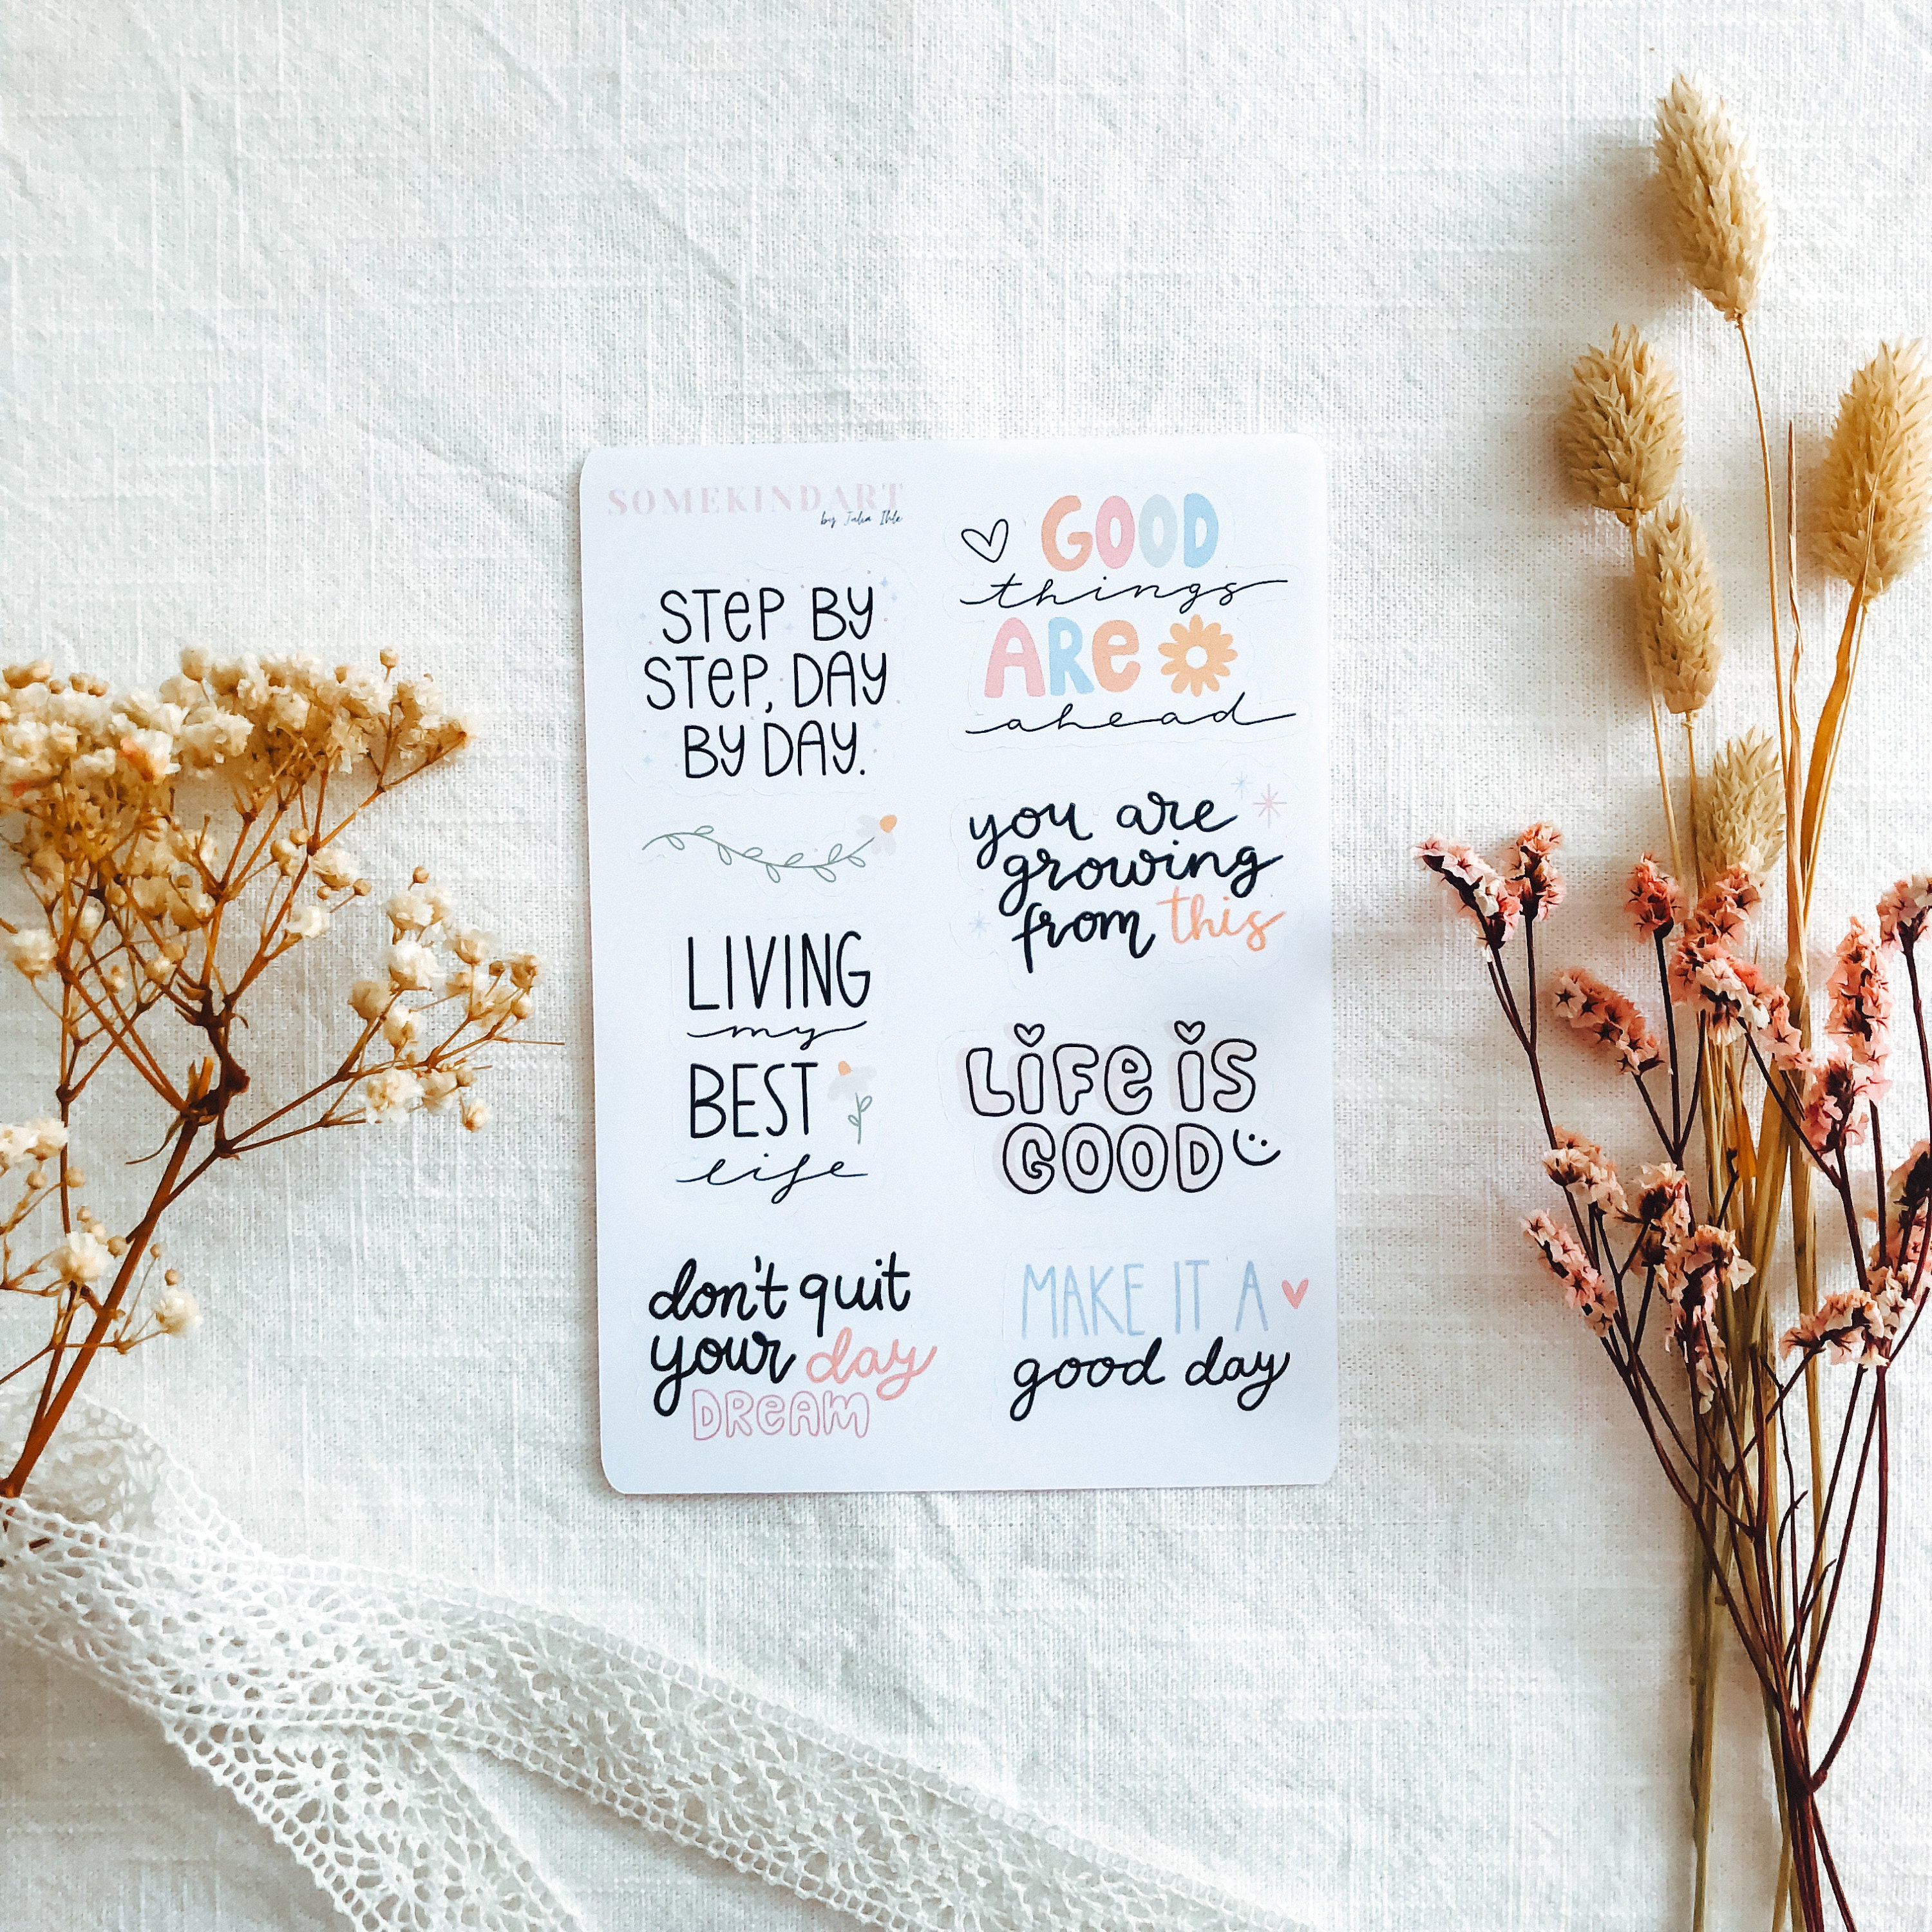 SOMEKINDART
by Julia Ihle
STEP BY
STEP, DAY
BY DAY.
LIVING
my
BEST
life
don't quit
your day
DREAM
GOOD
things
ARE
ahead
you are
growing
from this
LIFE IS
GOOD
MAKE IT A
good day